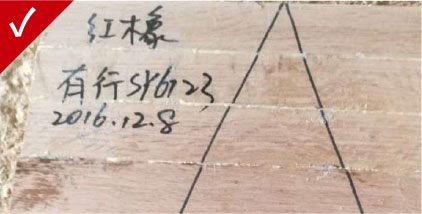 红橡
有行SY6123
2016.12.8